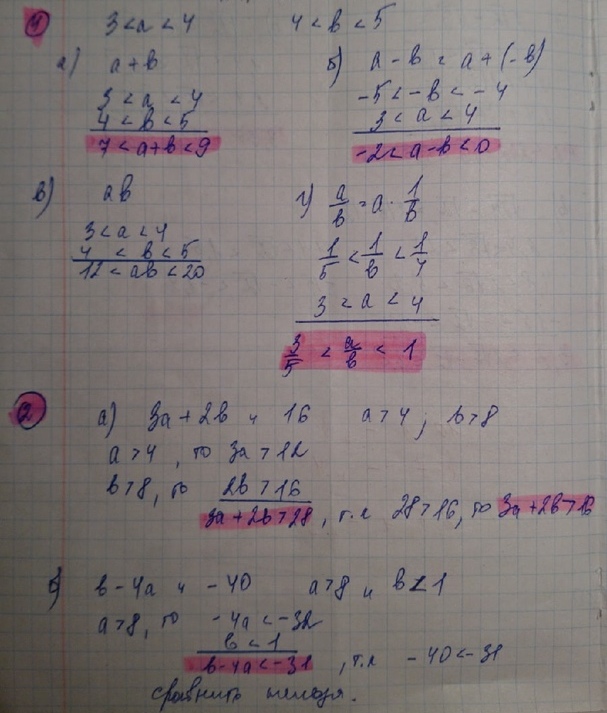 1 3 < a < 4 4 < b < 5
а) a + b
3 < a < 4
4 < b < 5
7 < a + b < 9
б) a - b = a + (-b)
-5 < -b < -4
3 < a < 4
-2 < a - b < 0
в) ab
3 < a < 4
4 < b < 5
12 < ab < 20
г) a/b = a · 1/b
1/5 < 1/b < 1/4
3 < a < 4
3/5 < a/b < 1
2 а) 3a + 2b и 16 a > 4; b > 8
a > 4, то 3a > 12
b > 8, то 2b > 16
3a + 2b > 28, т.к 28 > 16, то 3a + 2b > 16
б) b - 4a и -40 a > 8 и b < 1
a > 8, то -4a < -32
b < 1
b - 4a < -31, т.к -40 < -31
сравнить нельзя.